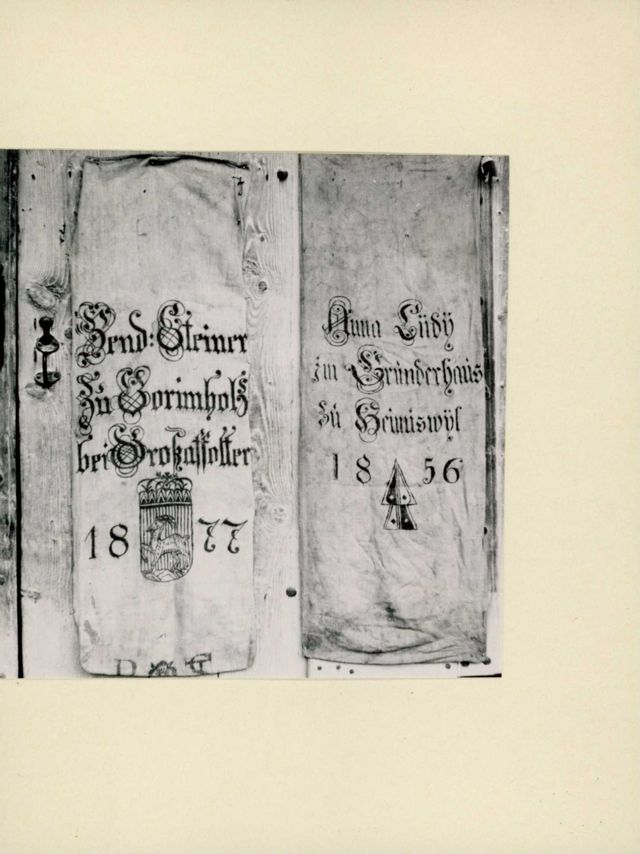 Bend: Steiner
Zu Vorimholz
bei Großaffolter
18 77
Anna Lüdÿ
im Gründerhaus
Zu Heimiswÿl
18 56